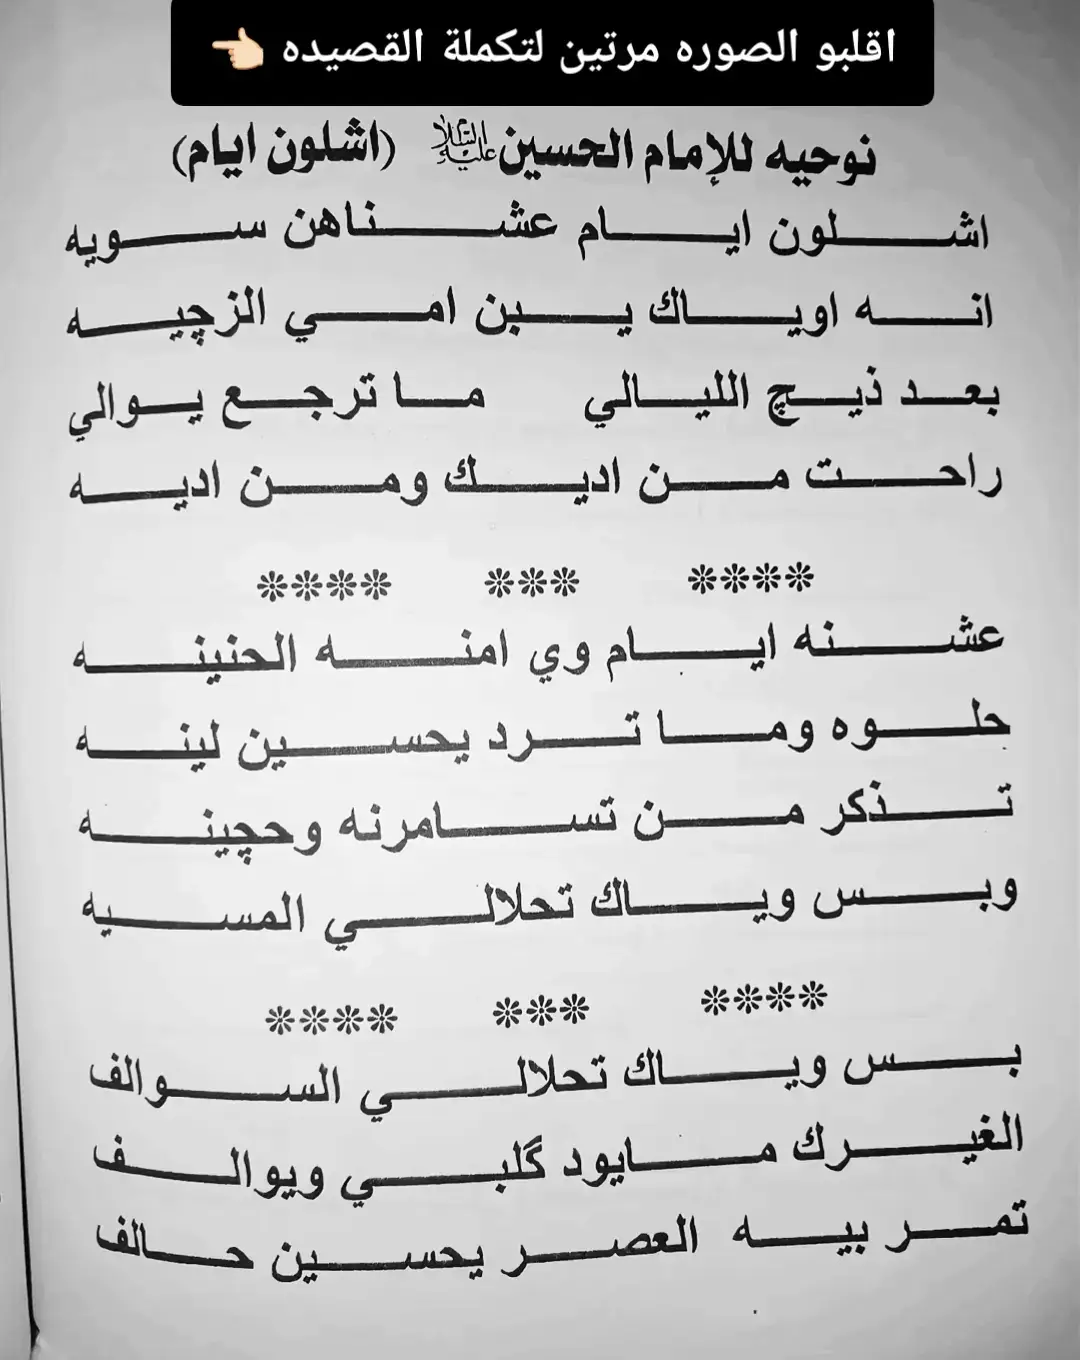 اقلبو الصوره مرتين لتكملة القصيده 👈🏻
نوحيه للإمام الحسين عليه السلام (اشلون ايام)
اشلون ايام عشناهن سويه
انه اوياك يبن امي الزچيه
بعد ذيچ الليالي ما ترجع يوالي
راحت من اديك ومن اديه
**** *** ****
عشنه ايام وي امنه الحنينه
حلوه وما ترد يحسين لينه
تذكر من تسامرنه وحچينه
وبس وياك تحلالي المسيه
**** *** ****
بس وياك تحلالي السوالف
الغيرك مايود گلبي ويوالف
تمر بيه العصر يحسين حالف